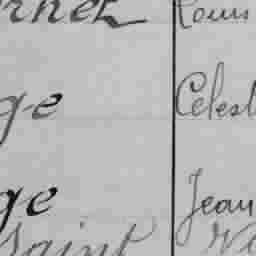 rnez Louis
ge Celest
ge Jean
Saint